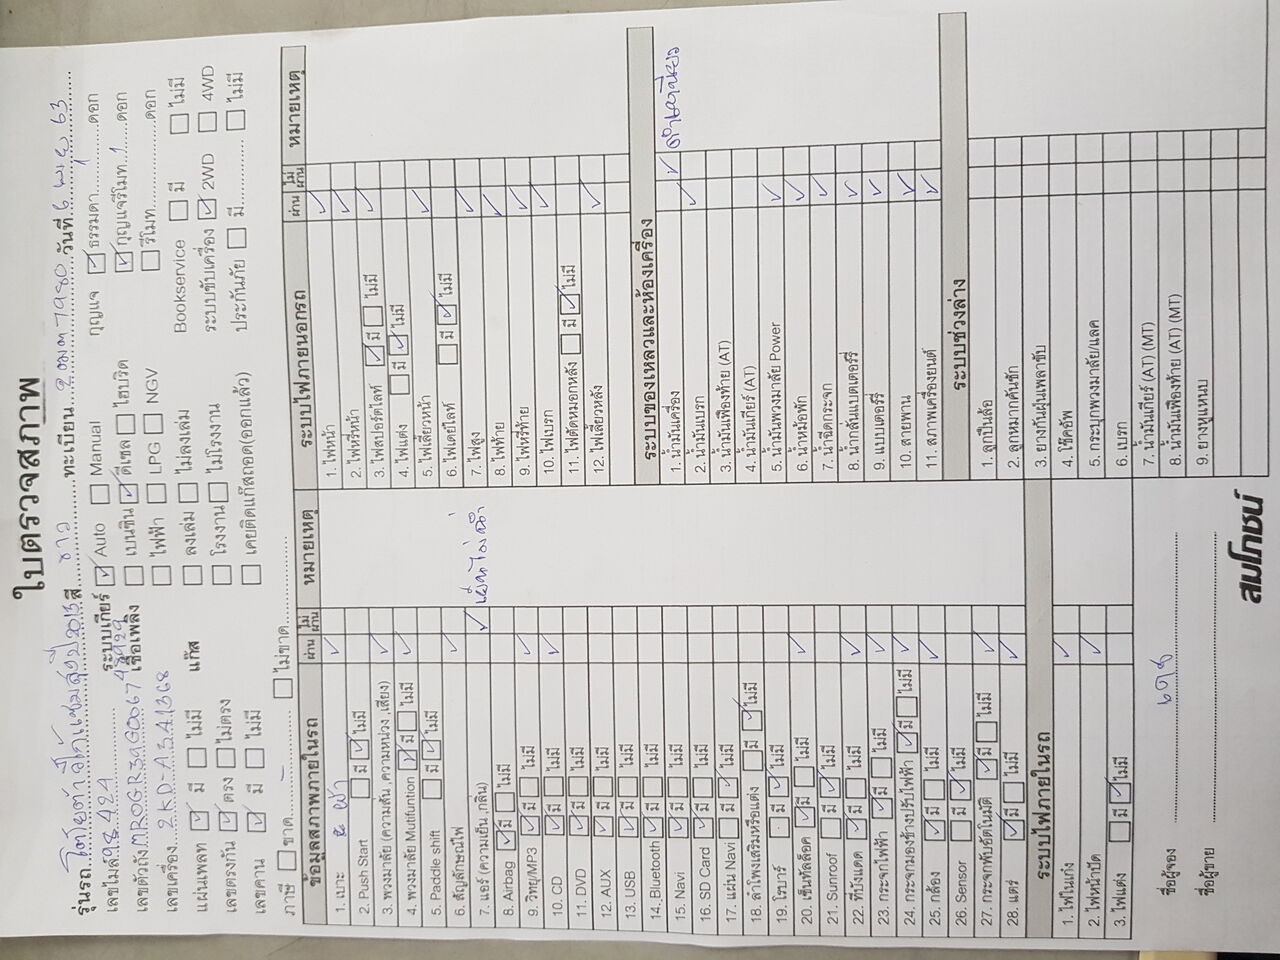 ใบตรวจสภาพ
รุ่นรถ โตโยต้าวีโก้แชมป์ ปี 2013 สี ขาว ทะเบียน 7980 วันที่ 6 พ.ย 63
เลขไมล์ 98,424 ระบบเกียร์ ☑ Auto ☐ Manual กุญแจ ☑ ธรรมดา 1 ดอก
เลขตัวถัง MROGR39G00674 เชื้อเพลิง ☐ เบนซิน ☑ ดีเซล ☐ ไฮบริด ☑ กุญแจรีโมท 1 ดอก
เลขเครื่อง 2KD-A341368 ☐ ไฟฟ้า ☐ LPG ☐ NGV ☐ รีโมท ดอก
แผ่นเพลท ☑ มี ☐ ไม่มี แก๊ส ☐ ลงเล่ม ☐ ไม่ลงเล่ม Bookservice ☐ มี ☐ ไม่มี
เลขตรงกัน ☑ ตรง ☐ ไม่ตรง ☐ โรงงาน ☐ ไม่โรงงาน ระบบขับเครื่อง ☑ 2WD ☐ 4WD
เลขคาน ☑ มี ☐ ไม่มี ☐ เคยติดแก๊สถอด(ออกแล้ว) ประกันภัย ☐ มี ☐ ไม่มี
ภาษี ☐ ขาด ☐ ไม่ขาด
ข้อมูลสภาพภายในรถ ผ่าน ไม่ผ่าน หมายเหตุ
1. เบาะ ผ้า ✓
2. Push Start ☐ มี ☑ ไม่มี
3. พวงมาลัย (ความสั่น ,ความหน่วง ,เสียง) ✓
4. พวงมาลัย Mutifuntion ☑ มี ☐ ไม่มี ✓
5. Paddle shift ☐ มี ☑ ไม่มี
6. สัญลักษณ์ไฟ ✓
7. แอร์ (ความเย็น ,กลิ่น) ✓ เย็นไม่ฉ่ำ
8. Airbag ☑ มี ☐ ไม่มี
9. วิทยุ/MP3 ☑ มี ☐ ไม่มี ✓
10. CD ☑ มี ☐ ไม่มี ✓
11. DVD ☑ มี ☐ ไม่มี
12. AUX ☑ มี ☐ ไม่มี
13. USB ☑ มี ☐ ไม่มี
14. Bluetooth ☑ มี ☐ ไม่มี
15. Navi ☑ มี ☐ ไม่มี
16. SD Card ☑ มี ☐ ไม่มี
17. แผ่น Navi ☐ มี ☑ ไม่มี
18. ลำโพงเสริมหรือแต่ง ☐ มี ☑ ไม่มี
19. โรบาร์ ☐ มี ☑ ไม่มี
20. เซ็นทัลล็อค ☑ มี ☐ ไม่มี ✓
21. Sunroof ☐ มี ☑ ไม่มี
22. ที่บังแดด ☑ มี ☐ ไม่มี ✓
23. กระจกไฟฟ้า ☑ มี ☐ ไม่มี ✓
24. กระจกมองข้างปรับไฟฟ้า ☑ มี ☐ ไม่มี ✓
25. กล้อง ☑ มี ☐ ไม่มี ✓
26. Sensor ☐ มี ☑ ไม่มี
27. กระจกพับอัตโนมัติ ☑ มี ☐ ไม่มี ✓
28. แตร์ ☑ มี ☐ ไม่มี ✓
ระบบไฟภายในรถ
1. ไฟในเก๋ง ✓
2. ไฟหน้าปัด ✓
3. ไฟแต่ง ☐ มี ☑ ไม่มี
ระบบไฟภายนอกรถ ผ่าน ไม่ผ่าน หมายเหตุ
1. ไฟหน้า ✓
2. ไฟหรี่หน้า ✓
3. ไฟสปอร์ตไลท์ ☑ มี ☐ ไม่มี ✓
4. ไฟแต่ง ☐ มี ☑ ไม่มี
5. ไฟเลี้ยวหน้า ✓
6. ไฟเดย์ไลท์ ☐ มี ☑ ไม่มี
7. ไฟสูง ✓
8. ไฟท้าย ✓
9. ไฟหรี่ท้าย ✓
10. ไฟเบรก ✓
11. ไฟตัดหมอกหลัง ☐ มี ☑ ไม่มี
12. ไฟเลี้ยวหลัง ✓
ระบบของเหลวและห้องเครื่อง
1. น้ำมันเครื่อง ✓
2. น้ำมันเบรก ✓
3. น้ำมันเฟืองท้าย (AT)
4. น้ำมันเกียร์ (AT)
5. น้ำมันพวงมาลัย Power ✓
6. น้ำหม้อพัก ✓
7. น้ำฉีดกระจก ✓
8. น้ำกลั่นแบตเตอร์รี่ ✓
9. แบบเตอร์รี่ ✓
10. สายพาน ✓
11. สภาพเครื่องยนต์ ✓
ระบบช่วงล่าง
1. ลูกปืนล้อ
2. ลูกหมากคันชัก
3. ยางกันฝุ่นเพลาขับ
4. โช๊คอัพ
5. กระปุกพวงมาลัย/แลค
6. เบรก
7. น้ำมันเกียร์ (AT) (MT)
8. น้ำมันเฟืองท้าย (AT) (MT)
9. ยางหูแหนบ
ชื่อผู้จอง
ชื่อผู้ขาย
สมโภชน์